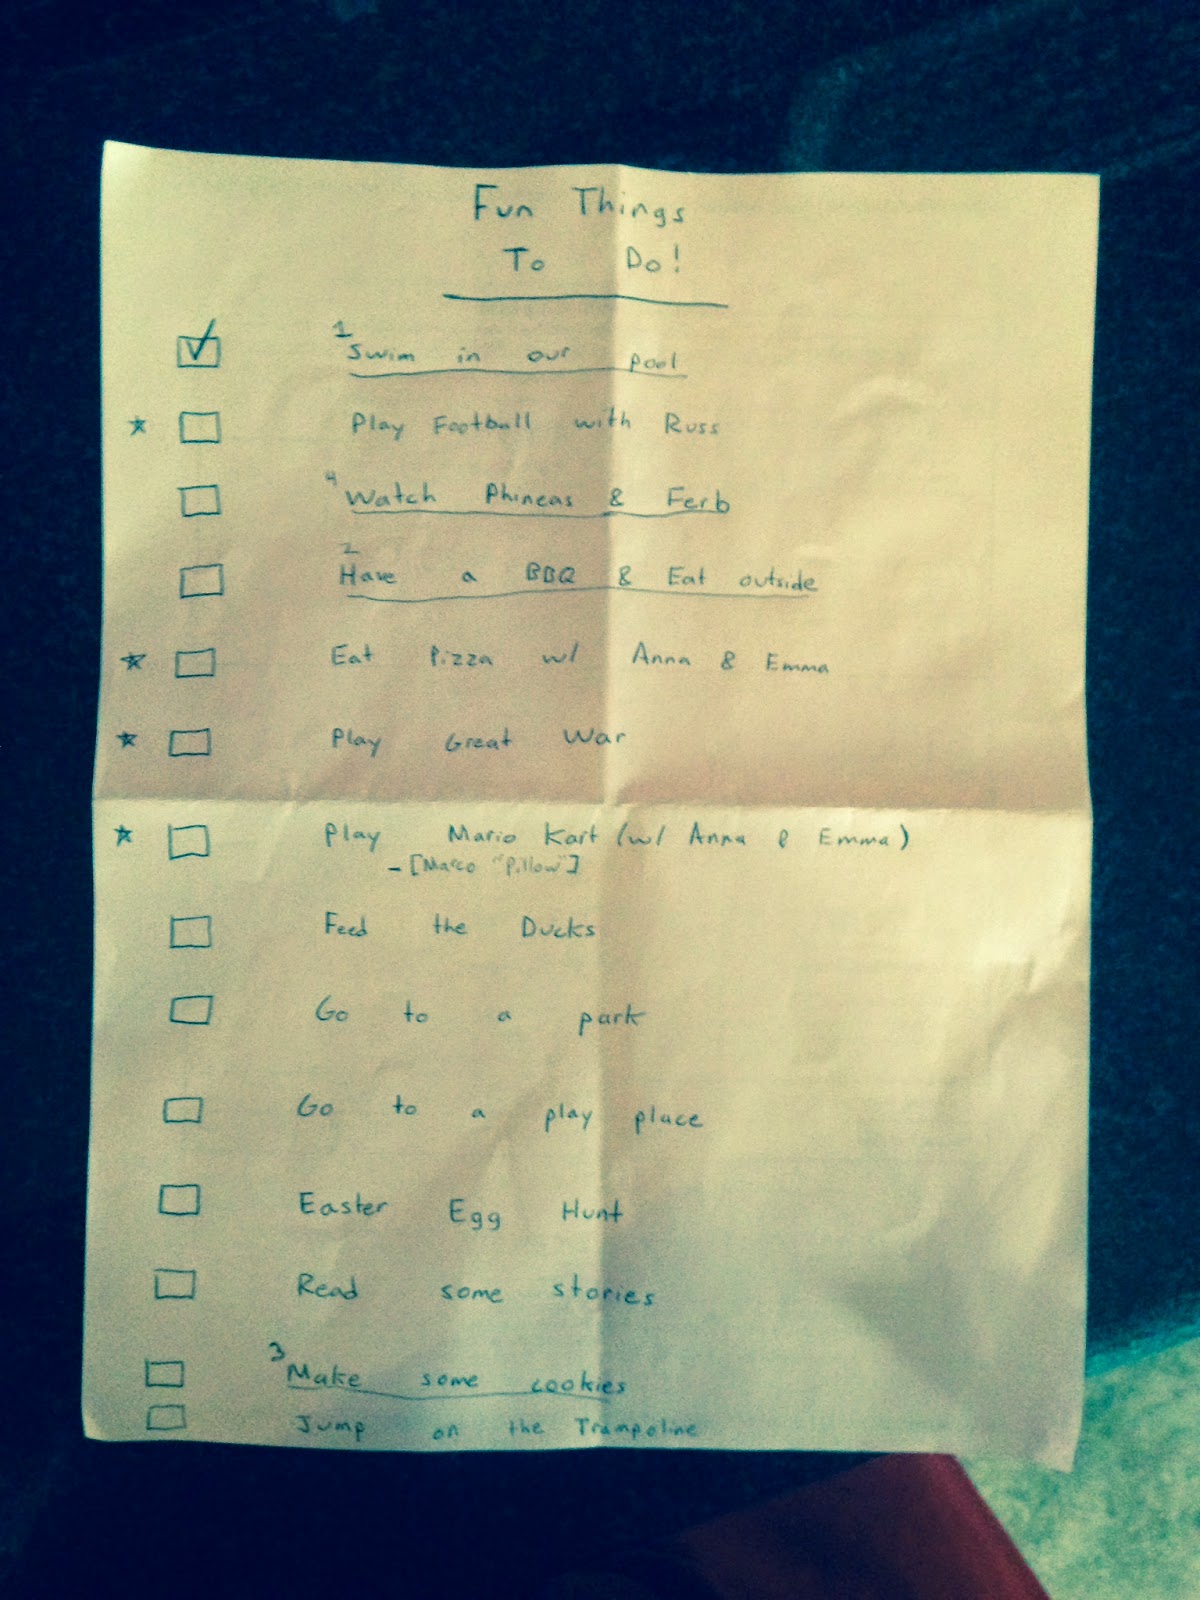 Fun Things
To Do!
1 Swim in our pool
Play Football with Russ
4 Watch Phineas & Ferb
2 Have a BBQ & Eat outside
Eat Pizza w/ Anna & Emma
Play Great War
Play Mario Kart (w/ Anna & Emma)
- [Marco "Pillow"]
Feed the Ducks
Go to a park
Go to a play place
Easter Egg Hunt
Read some stories
3 Make some cookies
Jump on the Trampoline